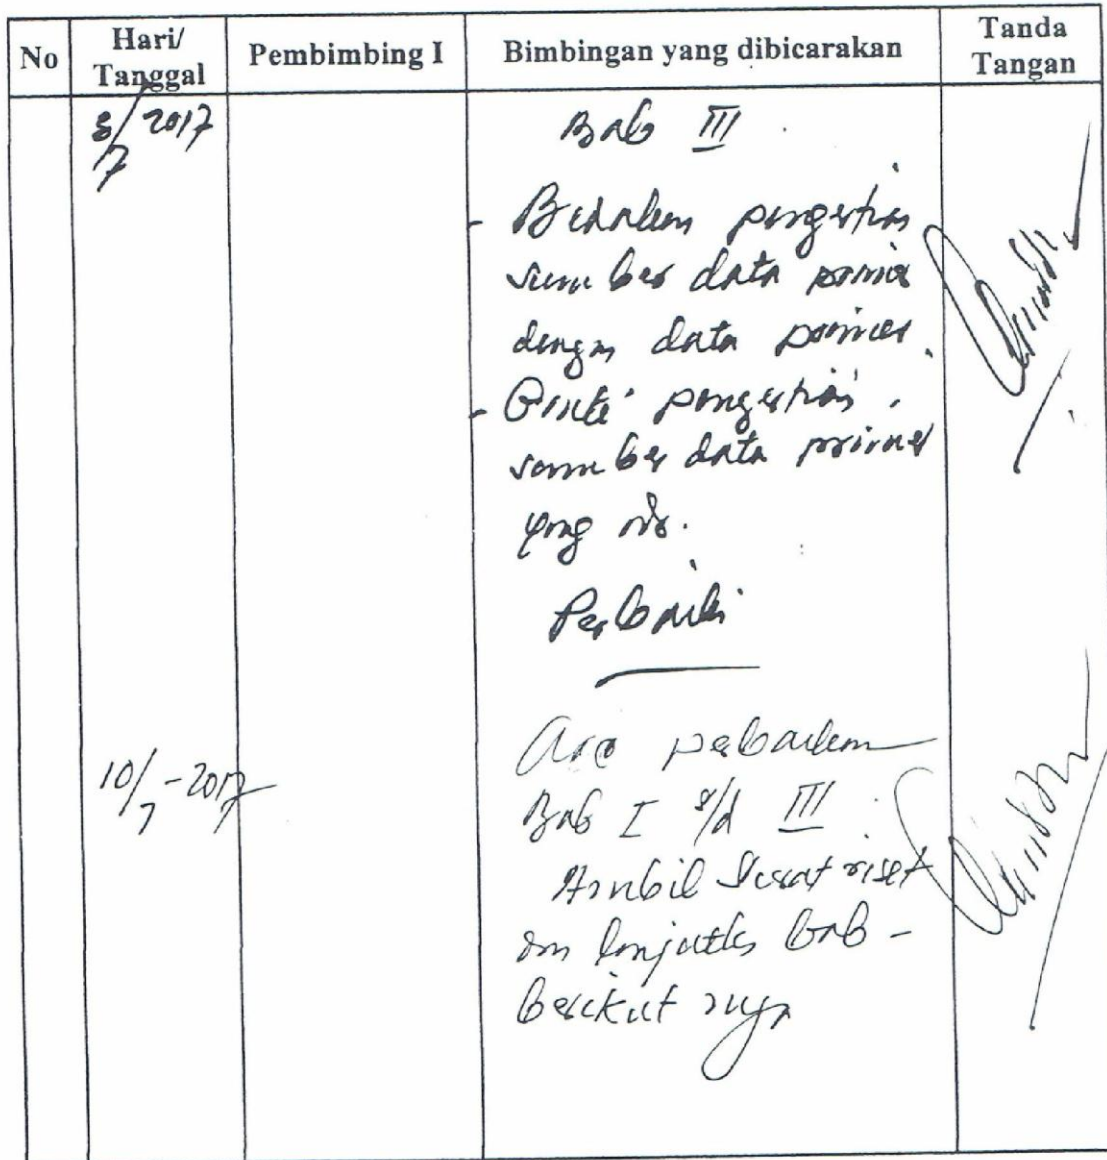 No
Hari/
Tanggal
Pembimbing I
Bimbingan yang dibicarakan
Tanda
Tangan
8/7 2017
Bab III
- Bedakan pengertian
sumber data primer
dengan data primer.
- pengertian
sumber data primer
yang
Perbaiki
10/7-2017
Acc perbaikan
Bab I s/d III
Ambil surat riset
dan lanjutkan bab-
berikut nya